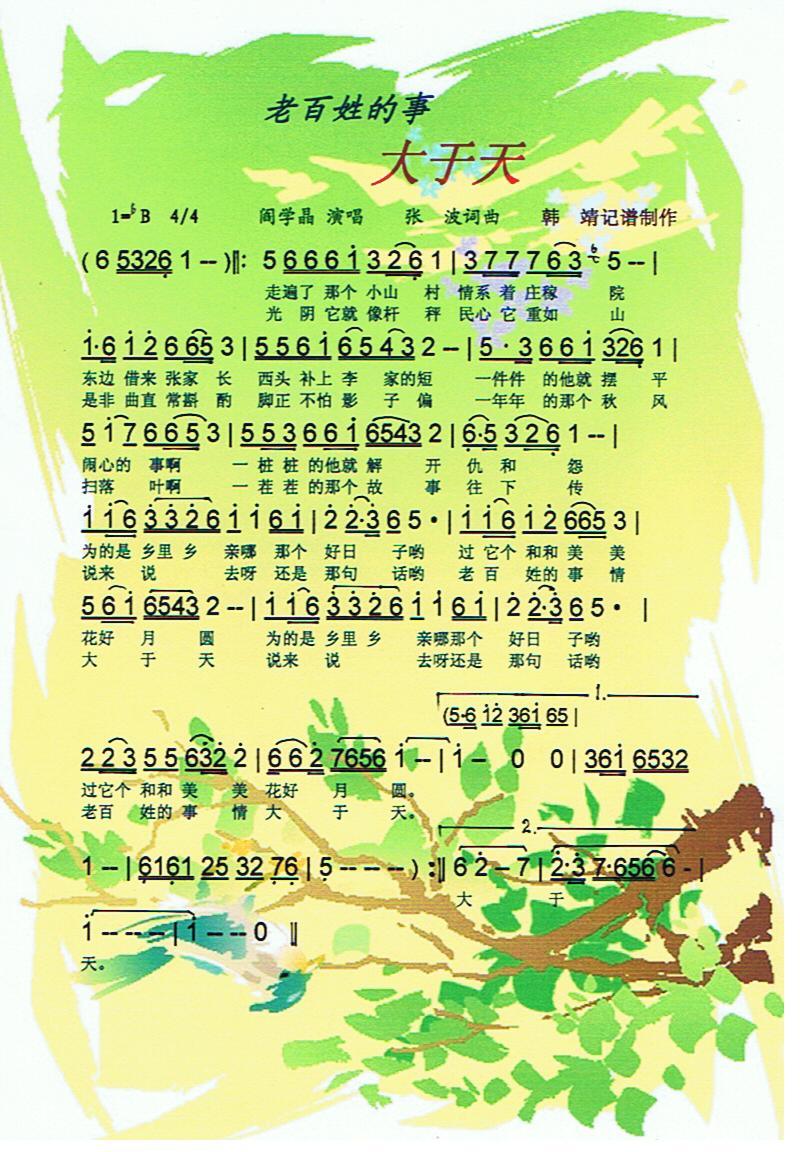 老百姓的事
大于天
1=♭B 4/4 阎学晶 演唱 张 波词曲 韩 靖记谱制作
( 6 5326 1 -- )‖: 5 6 6 6 1 3 2 6 1 | 3 7 7 7 6 3 5 -- |
走遍了 那个 小山 村 情系 着 庄稼 院
光 阴 它就 像杆 秤 民心 它 重如 山
1·6 1 2 6 6 5 3 | 5 5 6 1 6 5 4 3 2 -- | 5 · 3 6 6 1 3 2 6 1 |
东边 借来 张家 长 西头 补上 李 家的短 一件件 的他就 摆 平
是非 曲直 常斟 酌 脚正 不怕 影 子 偏 一年年 的那个 秋 风
5 1 7 6 6 5 3 | 5 5 3 6 6 1 6543 2 | 6·5 3 2 6 1 -- |
闹心的 事啊 一 桩 桩 的他就 解 开 仇 和 怨
扫落 叶啊 一 茬 茬 的那个 故 事 往 下 传
1 1 6 3 3 2 6 1 1 6 1 | 2 2·3 6 5 · | 1 1 6 1 2 6 6 5 3 |
为的是 乡里 乡 亲哪 那个 好日 子哟 过 它个 和和 美 美
说来 说 去呀 还是 那句 话哟 老 百 姓的 事 情
5 6 1 6543 2 -- | 1 1 6 3 3 2 6 1 1 6 1 | 2 2·3 6 5 · |
花好 月 圆 为的是 乡里 乡 亲哪那个 好日 子哟
大 于 天 说来 说 去呀还是 那句 话哟
1.
(5·6 12 361 65 |
2 2 3 5 5 6 3 2 2 | 6 6 2 7656 1 -- | 1 – 0 0 | 361 6532
过它个 和和 美 美 花好 月 圆。
老百 姓的事 情 大 于 天。
2.
1 -- | 6161 25 32 76 | 5 -- -- -- ) :‖ 6 2 – 7 | 2·3 7·656 6 - |
大 于
1 -- -- -- | 1 -- -- 0 ‖
天。